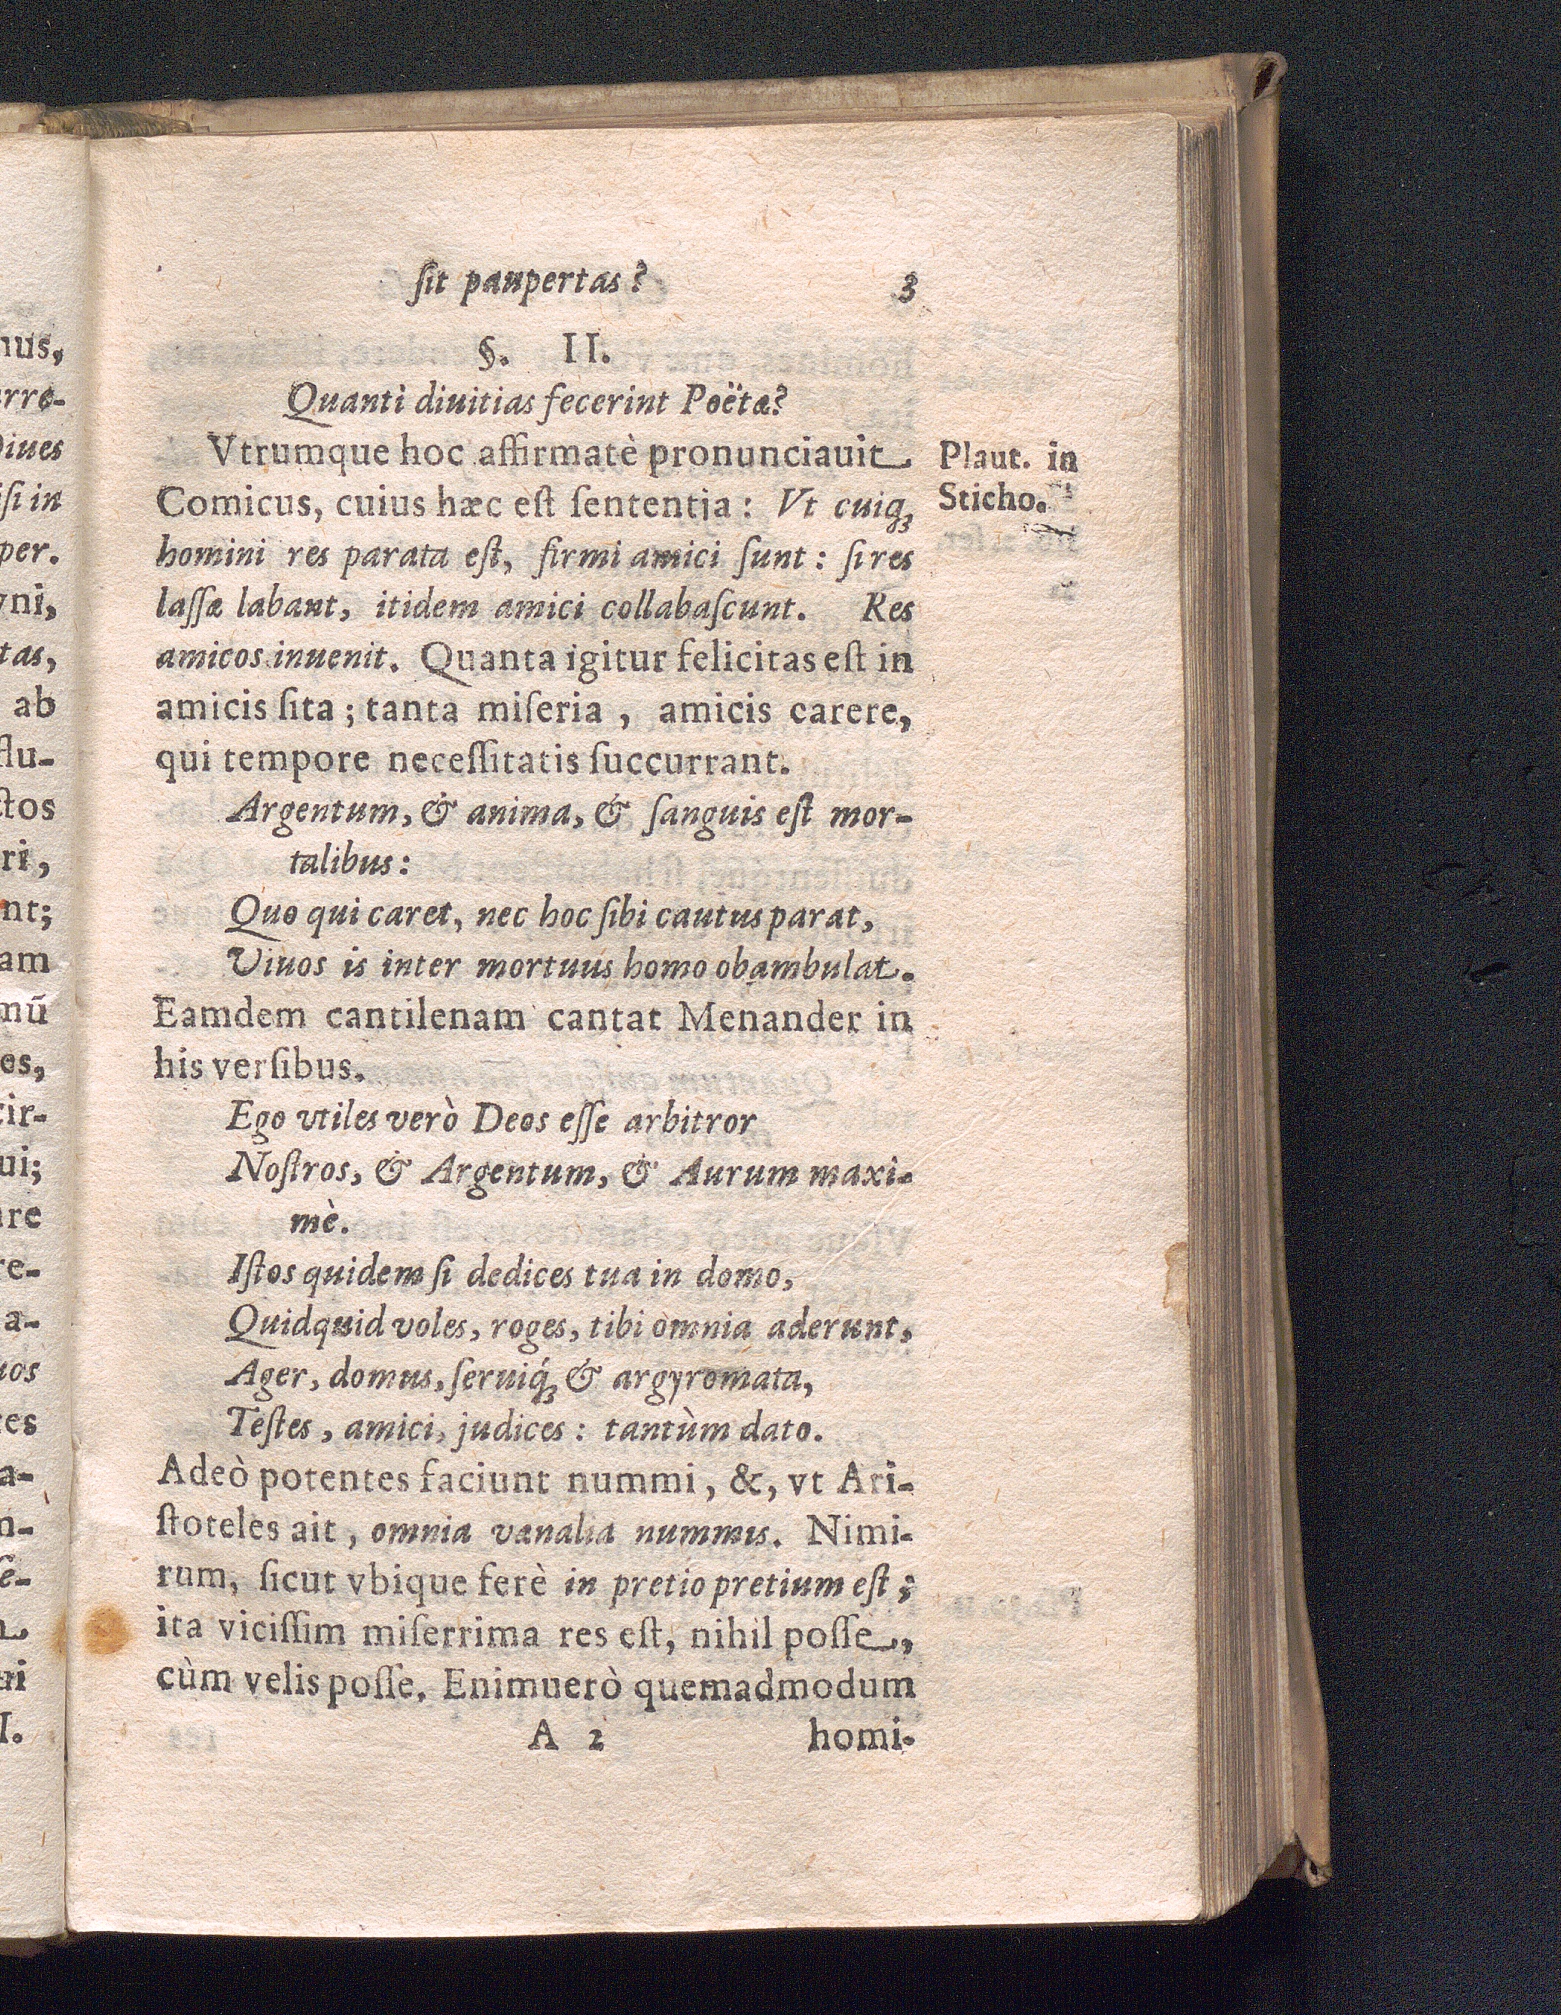 ſit paupertas? 3
§. II.
Quanti diuitias fecerint Poëtæ?
Vtrumque hoc affirmatè pronunciauit
Comicus, cuius hæc eſt ſententia: Vt cuiq;
homini res parata eſt, firmi amici ſunt: ſi res
laſſæ labant, itidem amici collabaſcunt. Res
amicos inuenit. Quanta igitur felicitas eſt in
amicis ſita; tanta miſeria, amicis carere,
qui tempore neceſſitatis ſuccurrant.
Plaut. in
Sticho.
Argentum, & anima, & ſanguis eſt mor-
talibus:
Quo qui caret, nec hoc ſibi cautus parat,
Viuos is inter mortuus homo obambulat.
Eamdem cantilenam cantat Menander in
his verſibus.
Ego vtiles verò Deos eſſe arbitror
Noſtros, & Argentum, & Aurum maxi-
mè.
Iſtos quidem ſi dedices tua in domo,
Quidquid voles, roges, tibi omnia aderunt,
Ager, domus, ſeruiq́; & argyromata,
Teſtes, amici, judices: tantùm dato.
Adeò potentes faciunt nummi, &, vt Ari-
ſtoteles ait, omnia vænalia nummis. Nimi-
rum, ſicut vbique ferè in pretio pretium eſt;
ita viciſſim miſerrima res eſt, nihil poſſe,
cùm velis poſſe. Enimuerò quemadmodum
A 2 homi-